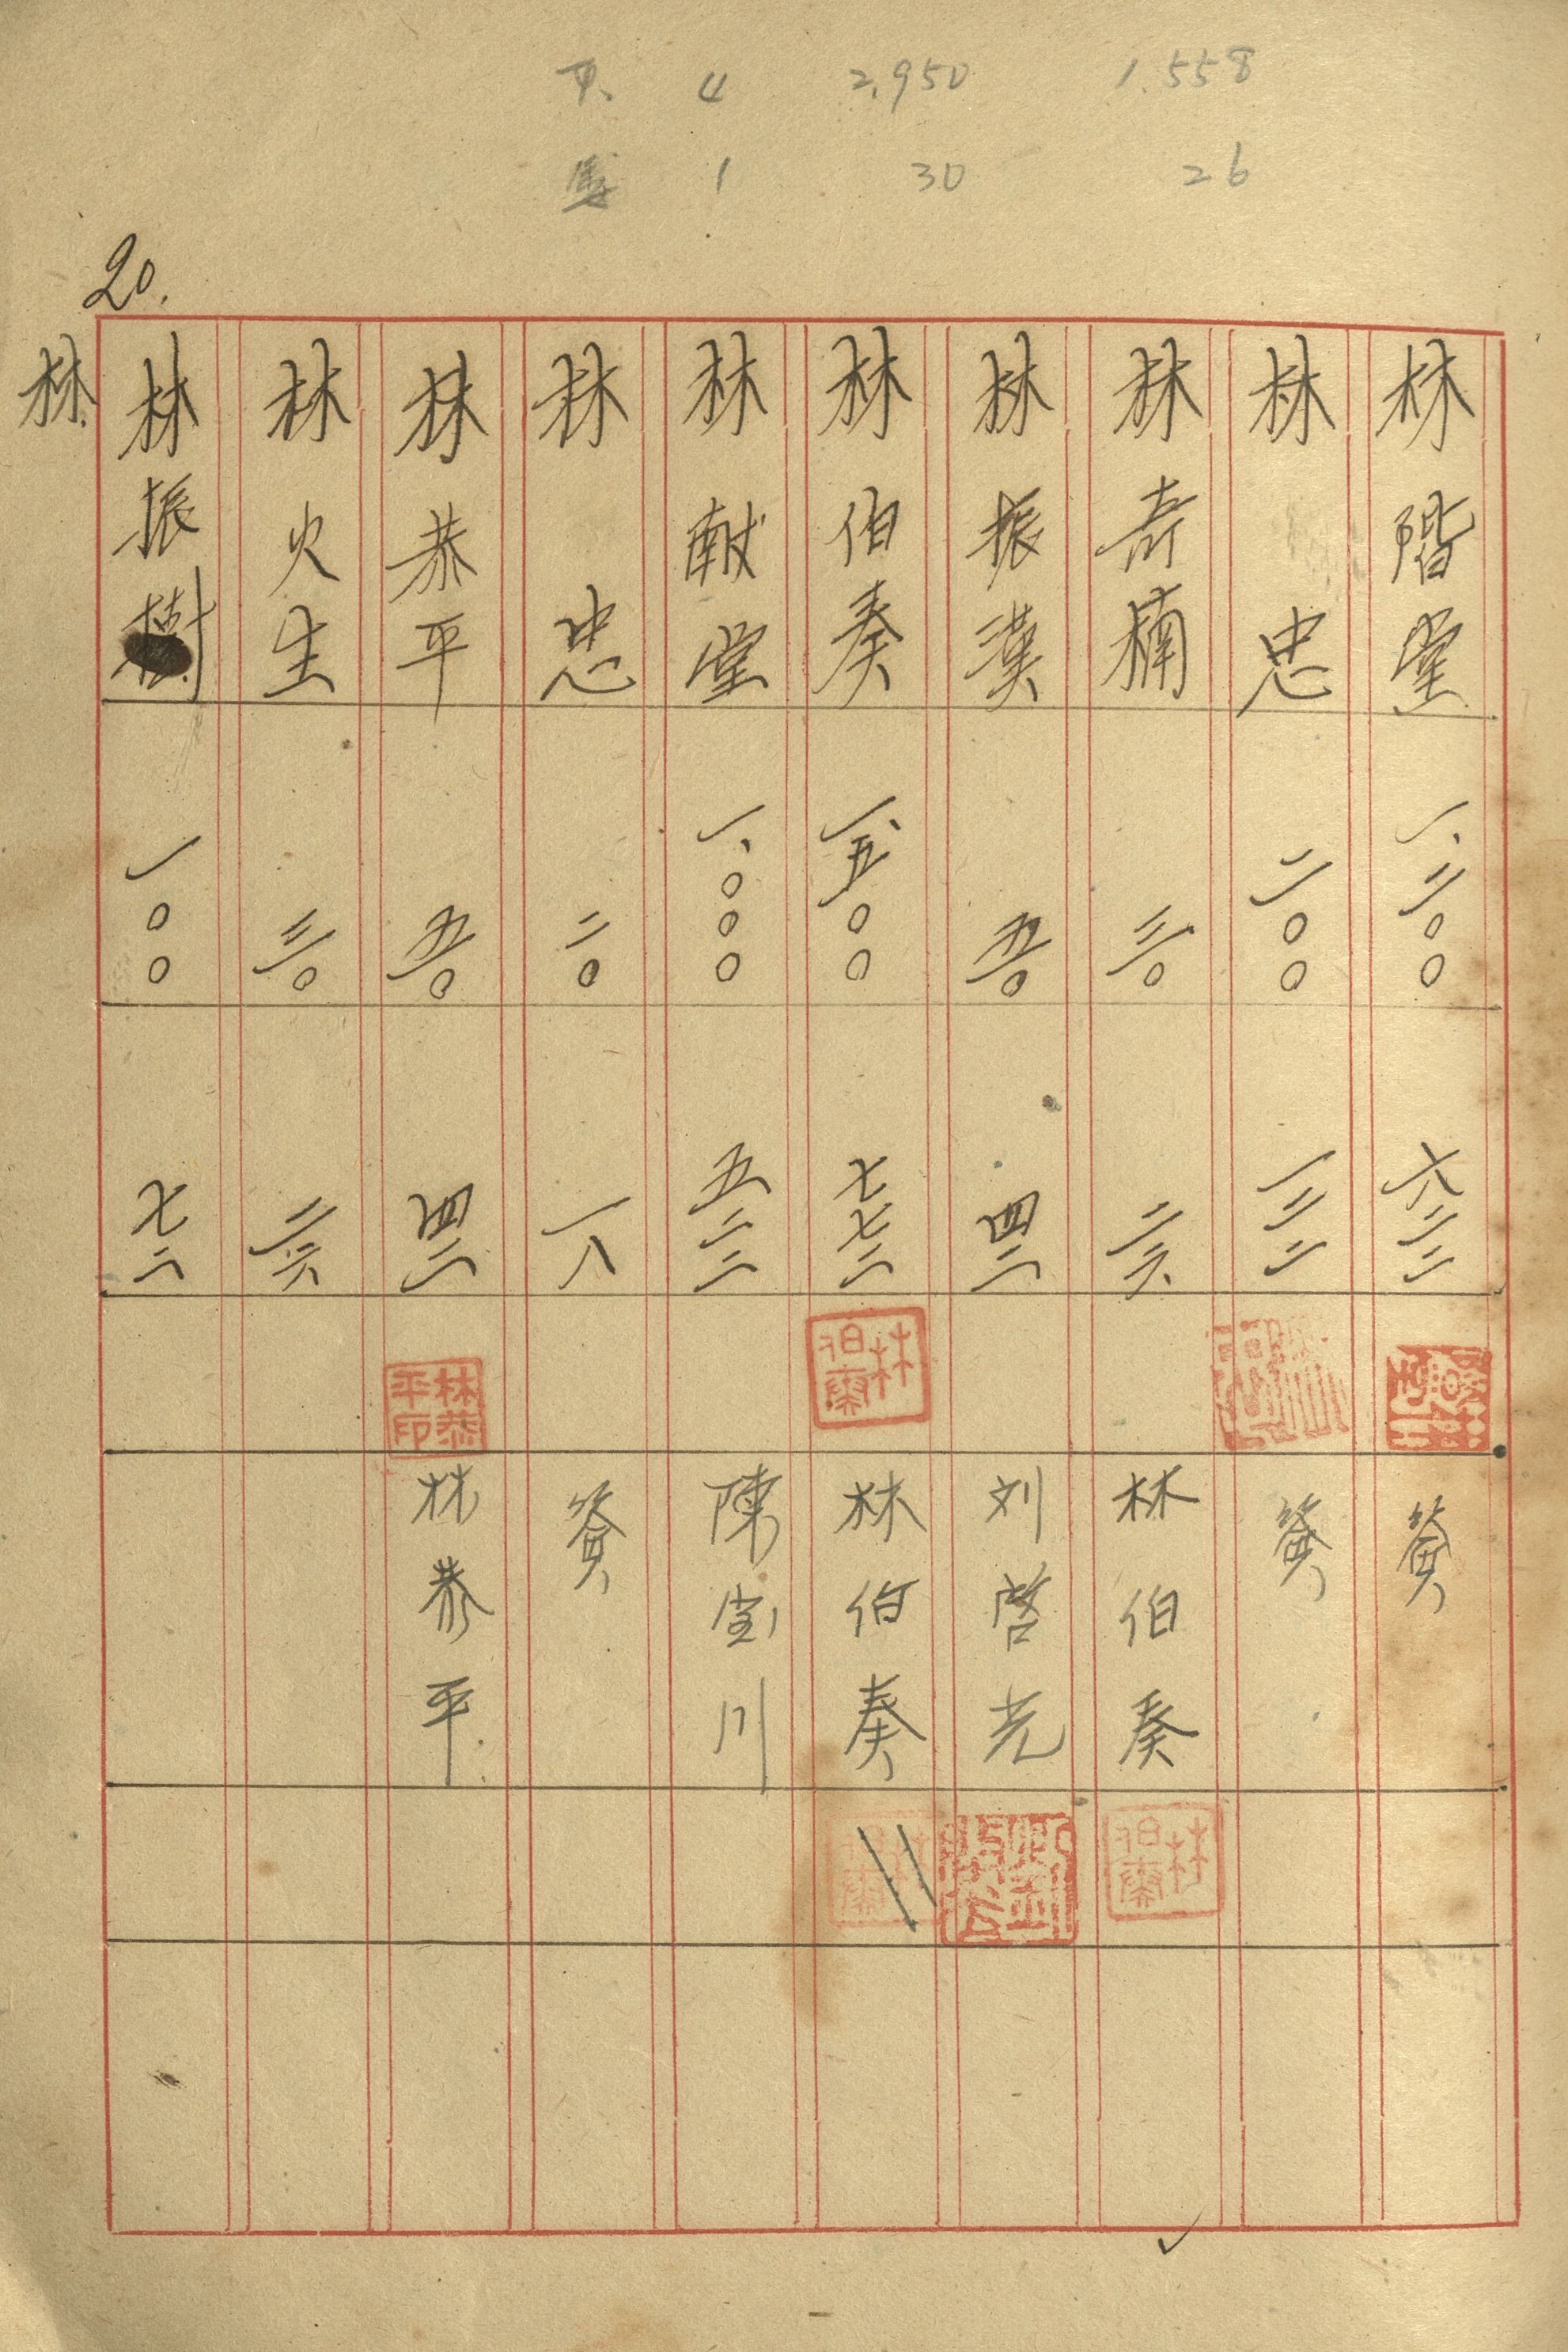 4 2,950 1,558
1 30 26
20.
林階堂 一、二〇〇 六二二 簽
林忠 二〇〇 一二二 簽
林奇楠 三〇 二六 林伯奏
林振漢 五〇 四二 刘啓光
林伯奏 一、五〇〇 七七二 林伯奏
林献堂 一、〇〇〇 五二二 陳宝川
林忠 二〇 一八 簽
林恭平 五〇 四二 林恭平印 林恭平
林火生 三〇 二六
林振樹 一〇〇 七二
林